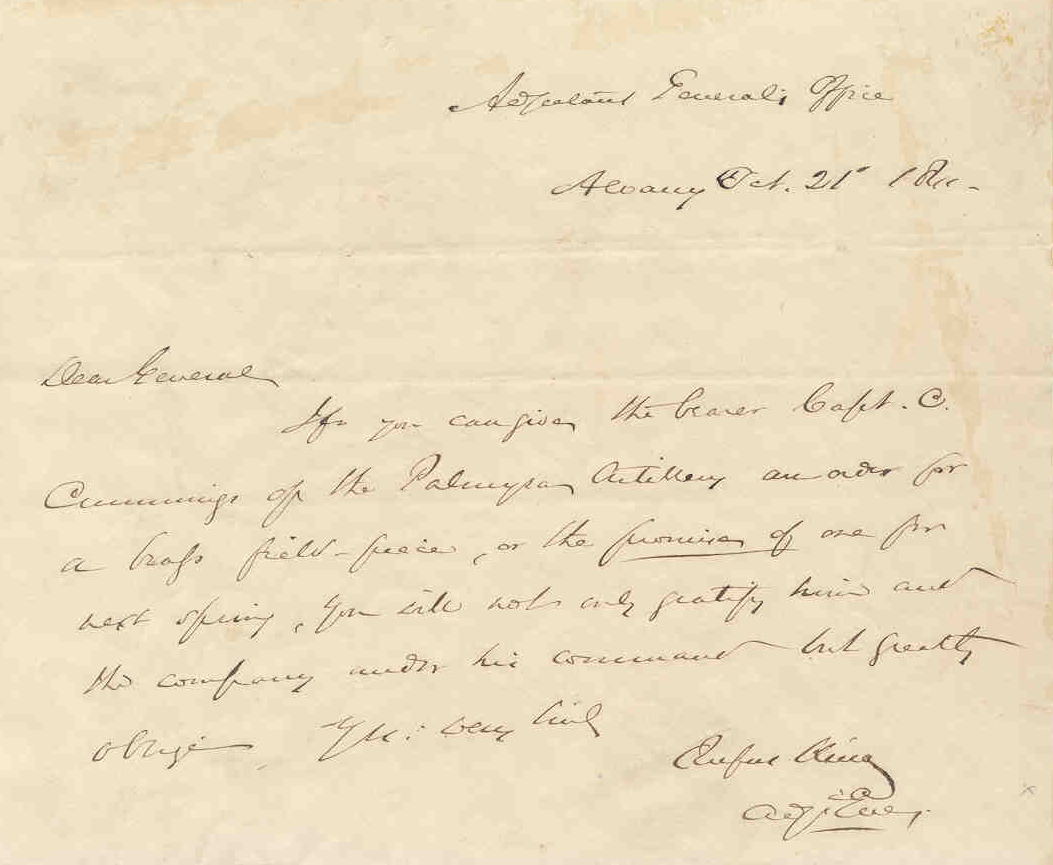 Adjutant General's Office
Albany Oct. 21st 184
Dear General
If you can give the bearer Capt. C.
Cummings of the Palmyra Artillery an order for
a brass field-piece, or the promise of one for
next spring, you will not only gratify him and
the company under his command but greatly
oblige Yrs: very truly
Rufus King
Adj: Genl.